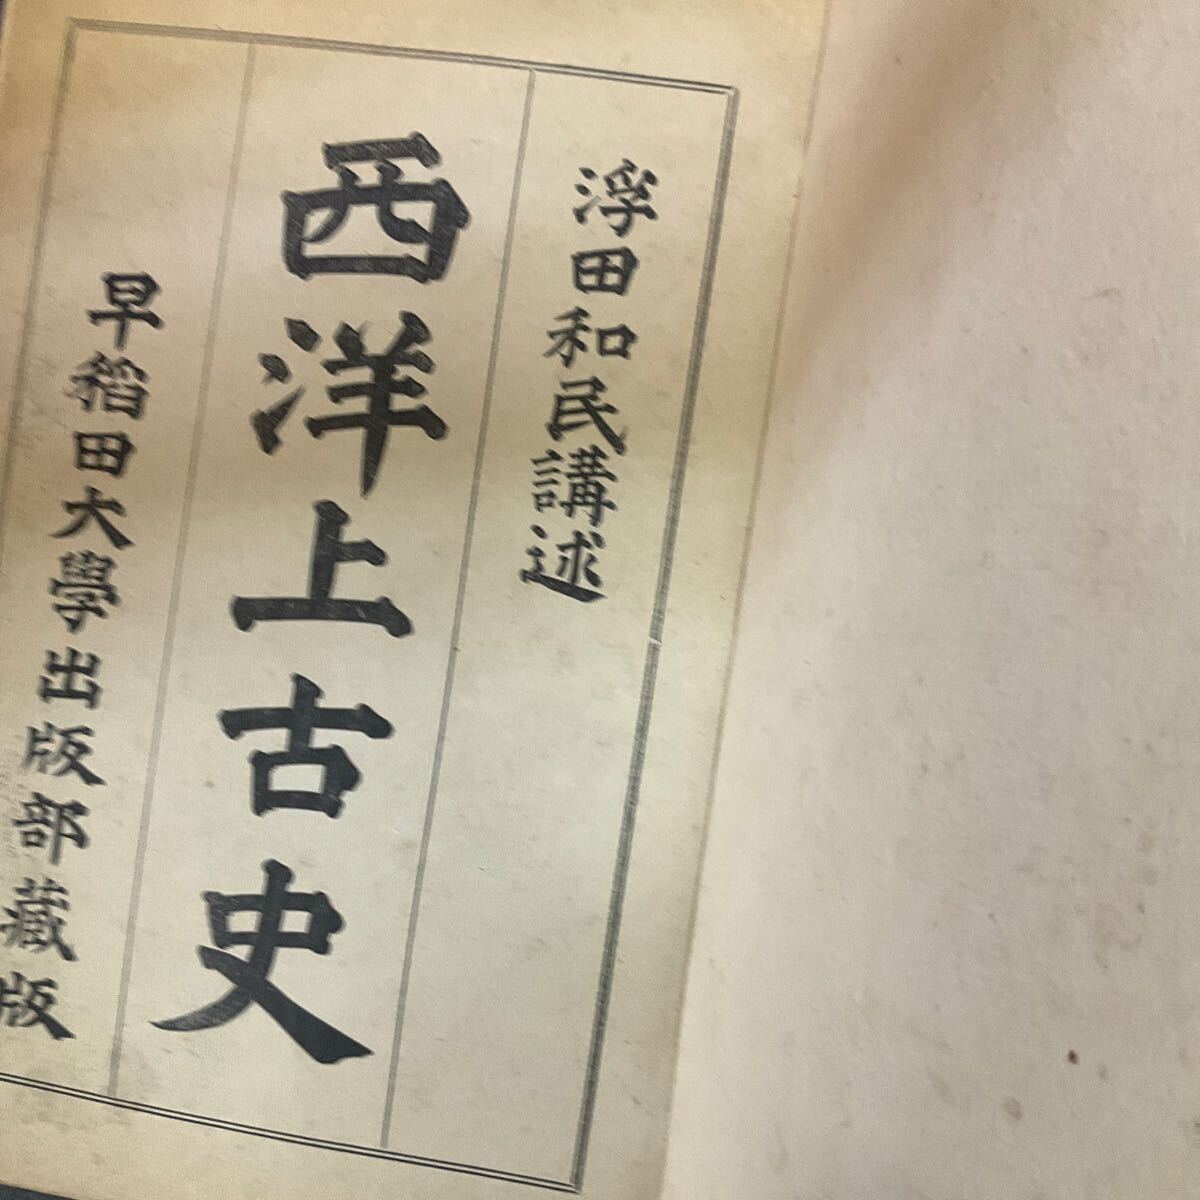 浮田和民講述
西洋上古史
早稻田大學出版部藏版